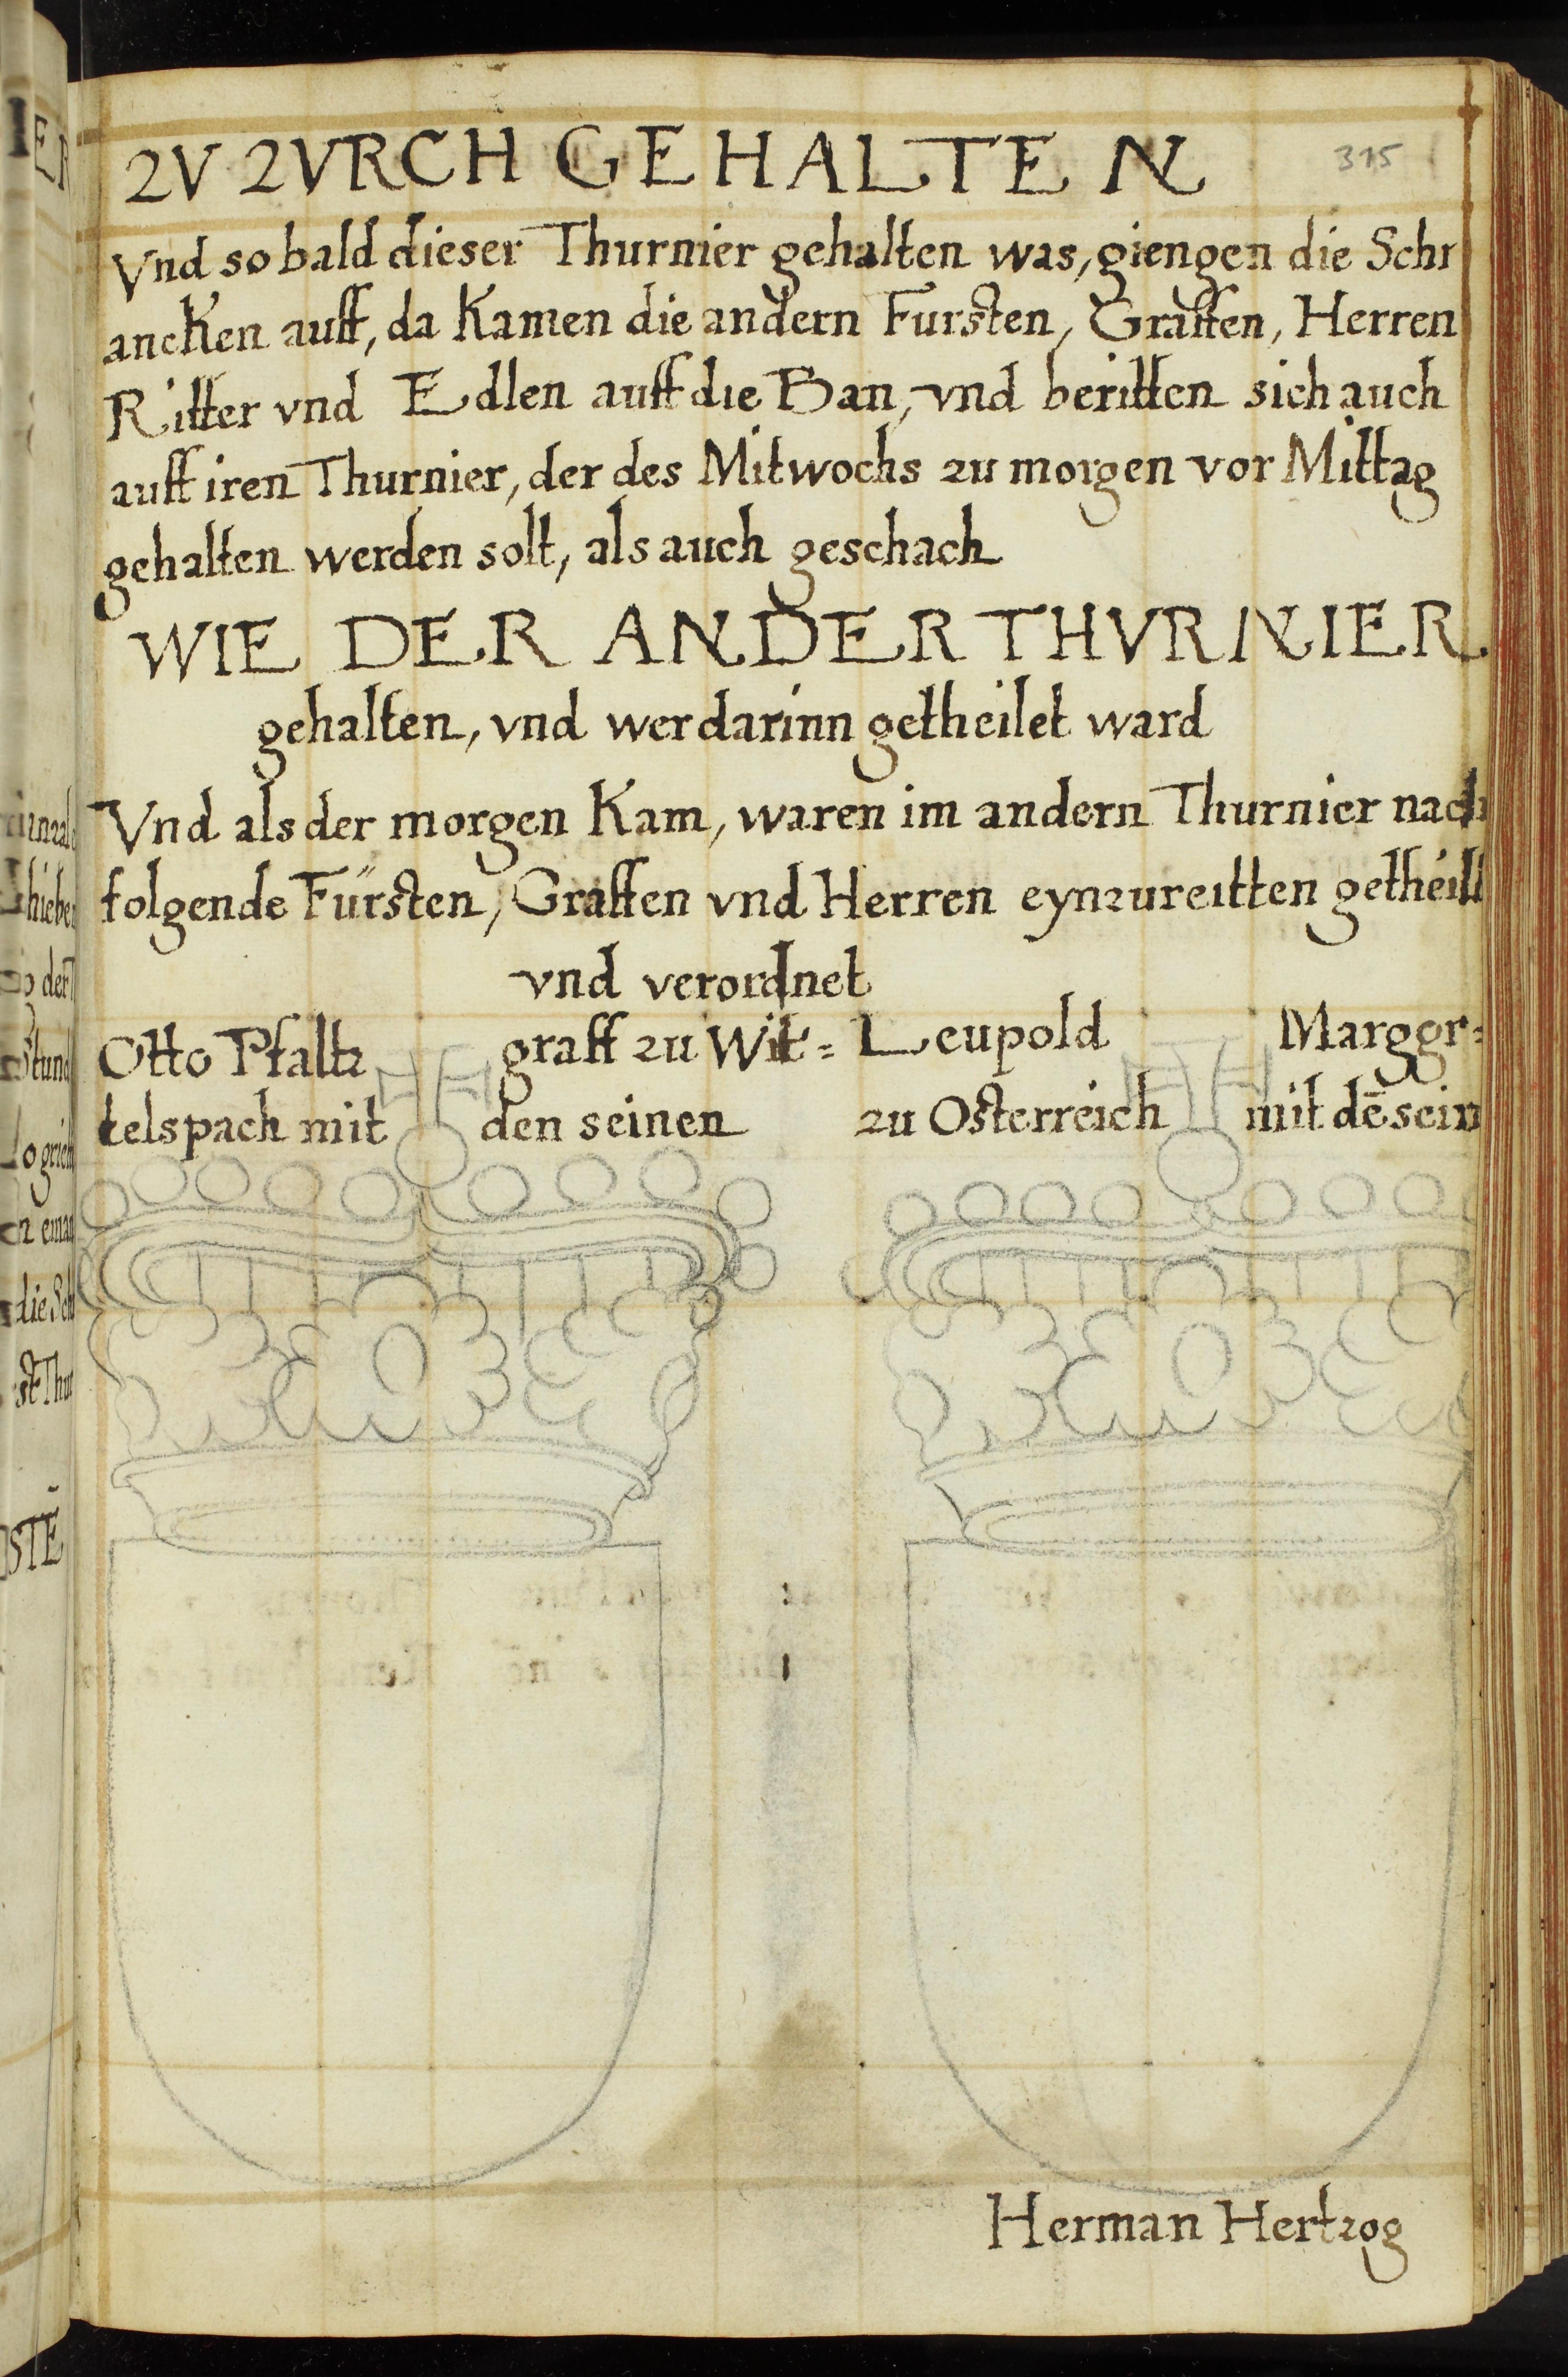 ZV ZVRCH GEHALTEN
315
Vnd so bald dieser Thurnier gehalten was, giengen die Schr
ancken auff, da Kamen die andern Fursten, Graffen, Herren
Ritter vnd Edlen auff die Ban, vnd beritten sich auch
auff iren Thurnier, der des Mitwochs zu morgen vor Mittag
gehalten werden solt, als auch geschach
WIE DER ANDER THVRNIER
gehalten, vnd wer darinn getheilet ward
Vnd als der morgen Kam, waren im andern Thurnier nach
folgende Fürsten, Graffen vnd Herren eynzureitten getheilt
vnd verordnet
Otto Pfaltz graff zu Wit=
telspach mit den seinen
Leupold Marggr=
zu Osterreich mit dē sein
Herman Hertzog